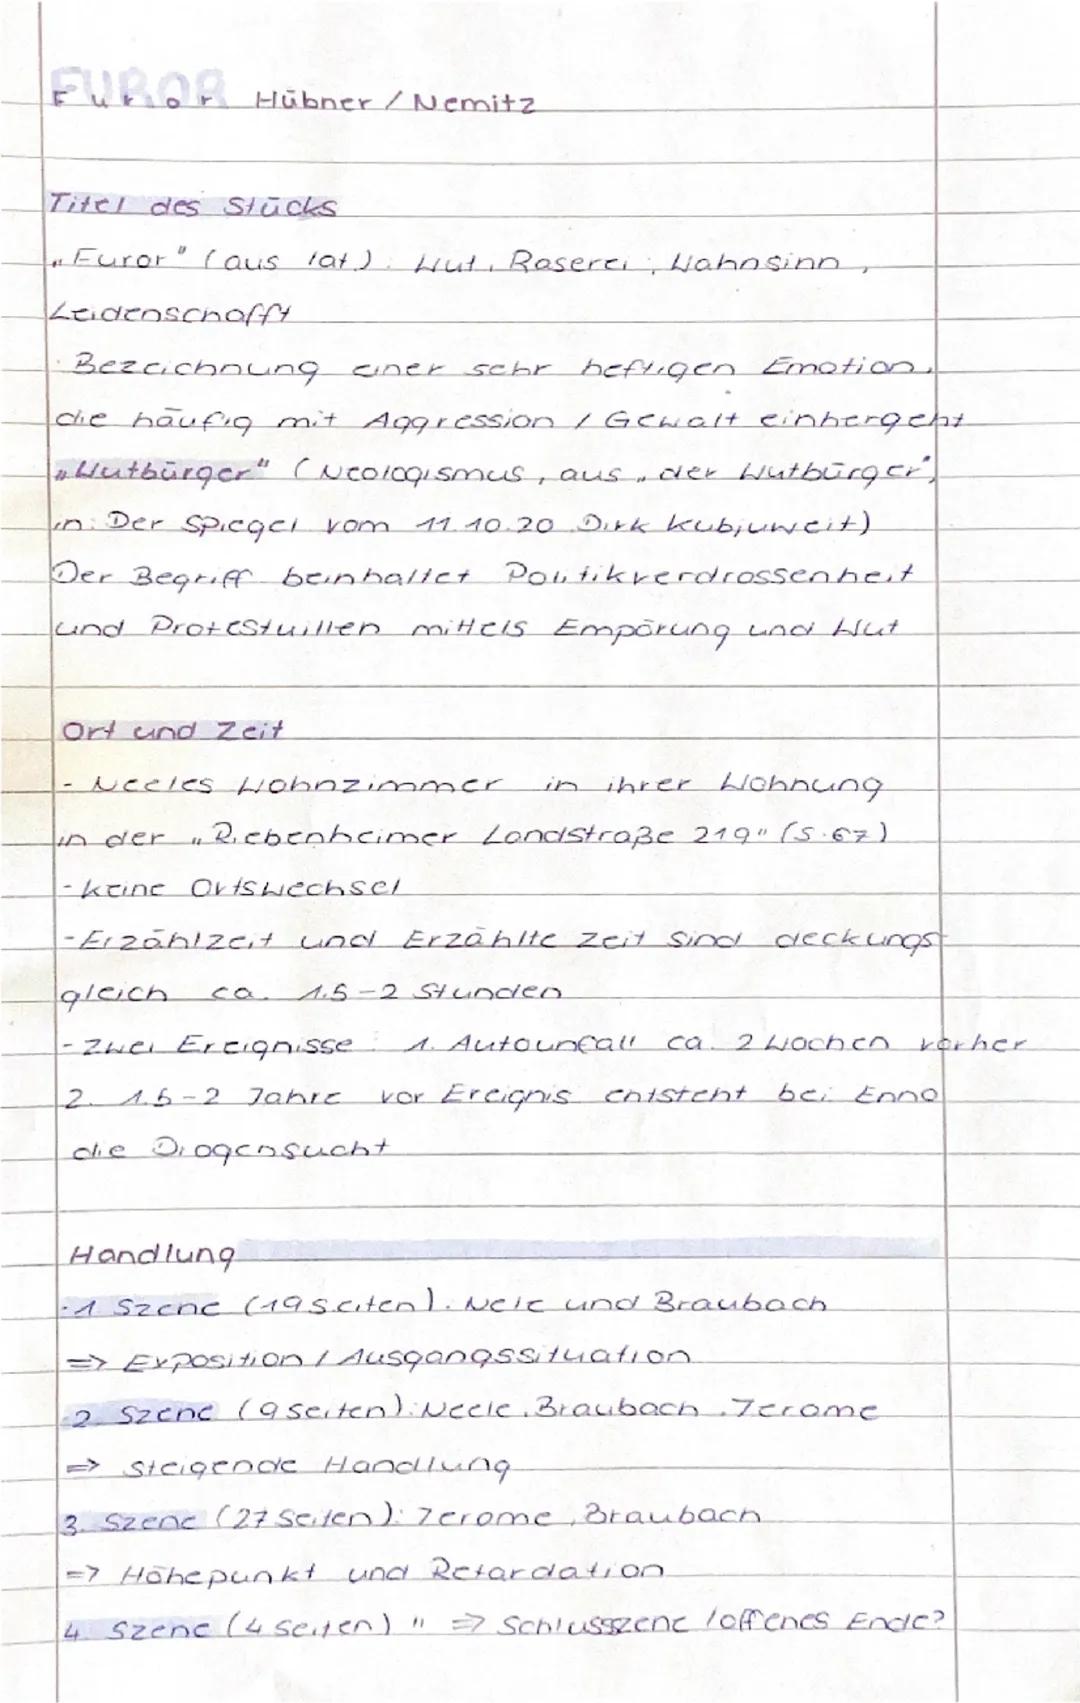 FUROR
Furor Hübner / Nemitz
Titel des Stücks
„Furor" (aus lat.): Wut, Raserei, Wahnsinn,
Leidenschafft
· Bezeichnung einer sehr heftigen Emotion,
die häufig mit Aggression / Gewalt einhergeht
„Wutbürger" (Neologismus, aus „der Wutbürger",
in: Der Spiegel vom 11.10.20 Dirk Kubjuweit)
Der Begriff beinhaltet Politikverdrossenheit
und Protestwillen mittels Empörung und Wut
Ort und Zeit
- Neeles Wohnzimmer in ihrer Wohnung
in der „Riebenheimer Landstraße 219" (S.67)
- keine Ortswechsel
- Erzählzeit und Erzählte Zeit sind deckungs
gleich ca. 1.5-2 Stunden
- Zwei Ereignisse: 1. Autounfall ca. 2 Wochen vorher
2. 1.5-2 Jahre vor Ereignis entsteht bei Enno
die Drogensucht
Handlung
·1. Szene (19 Seiten): Nele und Braubach
=> Exposition / Ausgangssituation
·2. Szene (9 Seiten): Neele, Braubach, Jerome
=> Steigende Handlung
3. Szene (27 Seiten): Jerome, Braubach
=> Höhepunkt und Retardation
4. Szene (4 Seiten) " => Schlussszene / offenes Ende?